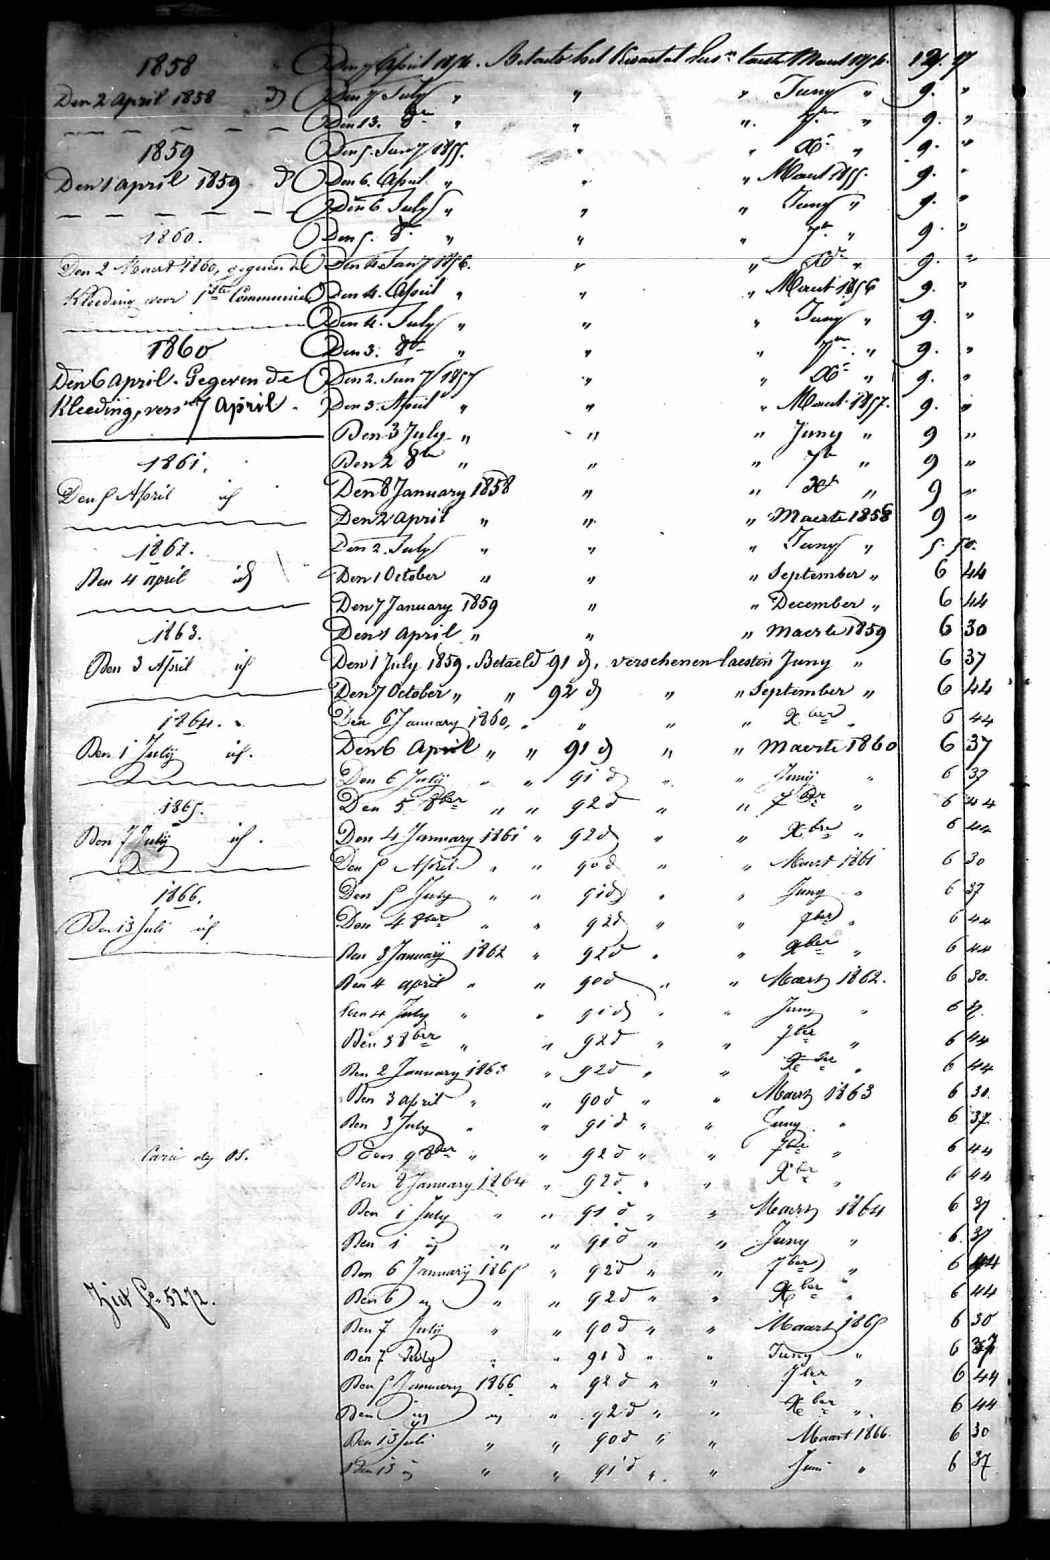 1858
Den 2 April 1858 d
1859
Den 1 April 1859 d
1860.
Den 2 Maart 1860, gegeven de
Kleeding voor 1ste Communie
1860
Den 6 April. Gegeven de
Kleeding, vers 7 April.
1861.
Den 5 April id
1862.
Den 4 april id
1863.
Den 3 April id
1864.
Den 1 Julÿ id.
1865.
Den 7 Julÿ id.
1866.
Den 13 Juli id
Ziet fo. 5272.
April Betaelt het Kwartaal Maart
Den 7 July " " " Juny " 9. "
Den 13. 8re " " " 7re " 9. "
Den 5. Jan 1855. " " Xr " 9. "
Den 6. April " " " Maert 1855. 9. "
Den 6 July " " " Juny " 9. "
Den 5. 8r " " " 7re " 9. "
Den 4 Jany 1856. " " Xr " 9. "
Den 4. April " " " Maert 1856 9. "
Den 4. July " " " Juny " 9. "
Den 3. 8re " " " 7re " 9. "
Den 2. Jany 1857 " " Xr " 9. "
Den 3. April " " " Maert 1857. 9. "
Den 3 July " " " Juny " 9 "
Den 2 8re " " " 7re " 9 "
Den 8 January 1858 " " Xr " 9 "
Den 2 April " " " Maerte 1858 9 "
Den 2. July " " " Juny " 5. 50.
Den 1 October " " " September " 6 44
Den 7 January 1859 " " December " 6 44
Den 1 April " " " Maerte 1859 6 30
Den 1 July 1859. Betaeld 91 d. verschenen laesten Juny " 6 37
Den 7 October " " 92 d " " September " 6 44
Den 6 January 1860, " " " " Xber " 6 44
Den 6 April " " 91 d " " Maerte 1860 6 37
Den 6 Julÿ " " 91 d " " Junÿ " 6 37
Den 5 8ber " " 92 d " " 7ber " 6 44
Den 4 January 1861 " 92 d " " Xbre " 6 44
Den 5 April " " 90 d " " Maert 1861 6 30
Den 5 July " " 91 d " " Juny " 6 37
Den 4 8ber " " 92 d " " 7ber " 6 44
Den 3 Januarÿ 1862 " 92 d " " Xber " 6 44
Den 4 april " " 90 d " " Maert 1862. 6 30.
Den 4 July " " 91 d " " Juny " 6 37.
Den 3 8ber " " 92 d " " 7ber " 6 44
Den 2 January 1863 " 92 d " " Xber " 6 44
Den 3 april " " 90 d " " Maert 1863 6 30.
Den 3 July " " 91 d " " Juny " 6 37.
Den 9 8ber " " 92 d " " 7ber " 6 44
Den 8 January 1864 " 92 d. " " Xber " 6 44
Den 1 July " " 91 d " " Maert 1864 6 37
Den 1 " " " 91 d " " Juny " 6. 37
Den 6 Januarÿ 1865 " 92 d " " 7ber " 6 44
Den 6 " " " 92 d " " Xber " 6 44
Den 7 Julÿ " " 90 d " " Maart 1865 6 30
Den 7 July " " 91 d " " Juny " 6 37
Den 5 January 1866 " 92 d " " 7ber " 6 44
Den " " " 92 d " " Xber " 6 44
Den 13 Juli " " 90 d " " Maart 1866. 6 30
Den 13 " " " 91 d " " Juni " 6 37